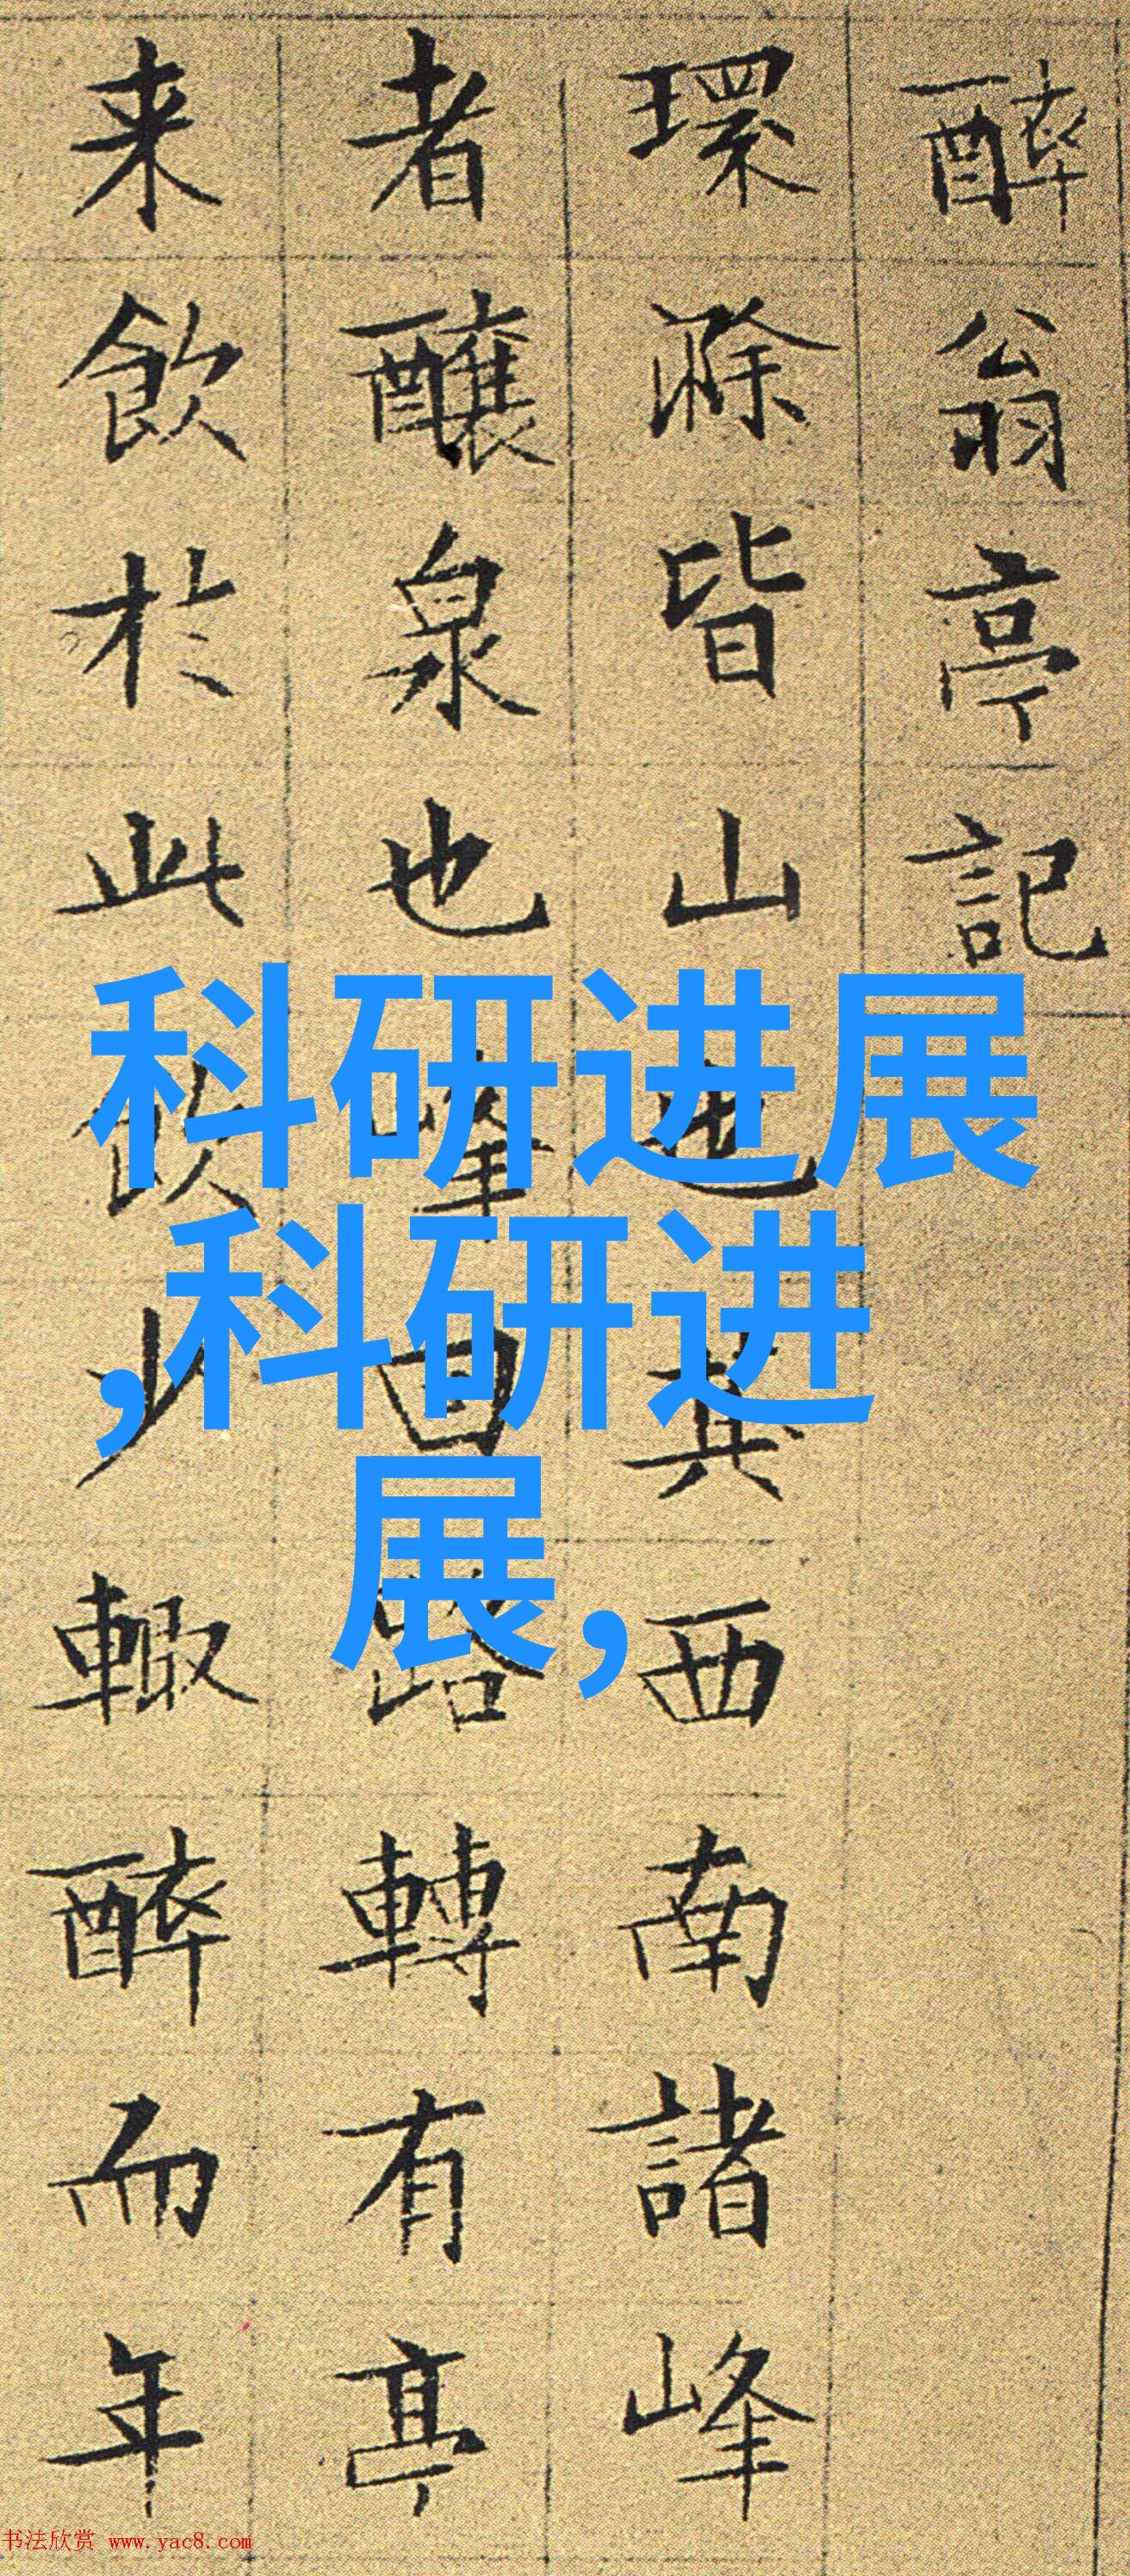 醉翁亭記
環滁皆山也其西南諸峰
者釀泉也峰回路轉有亭
来飲於此飲少輒醉而年
科研进展
,科研进
展,
书法欣赏 www.yac8.com